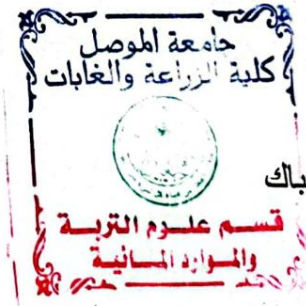 جامعة الموصل
كلية الزراعة والغابات
باك
قسم علوم التربة
والموارد المائية